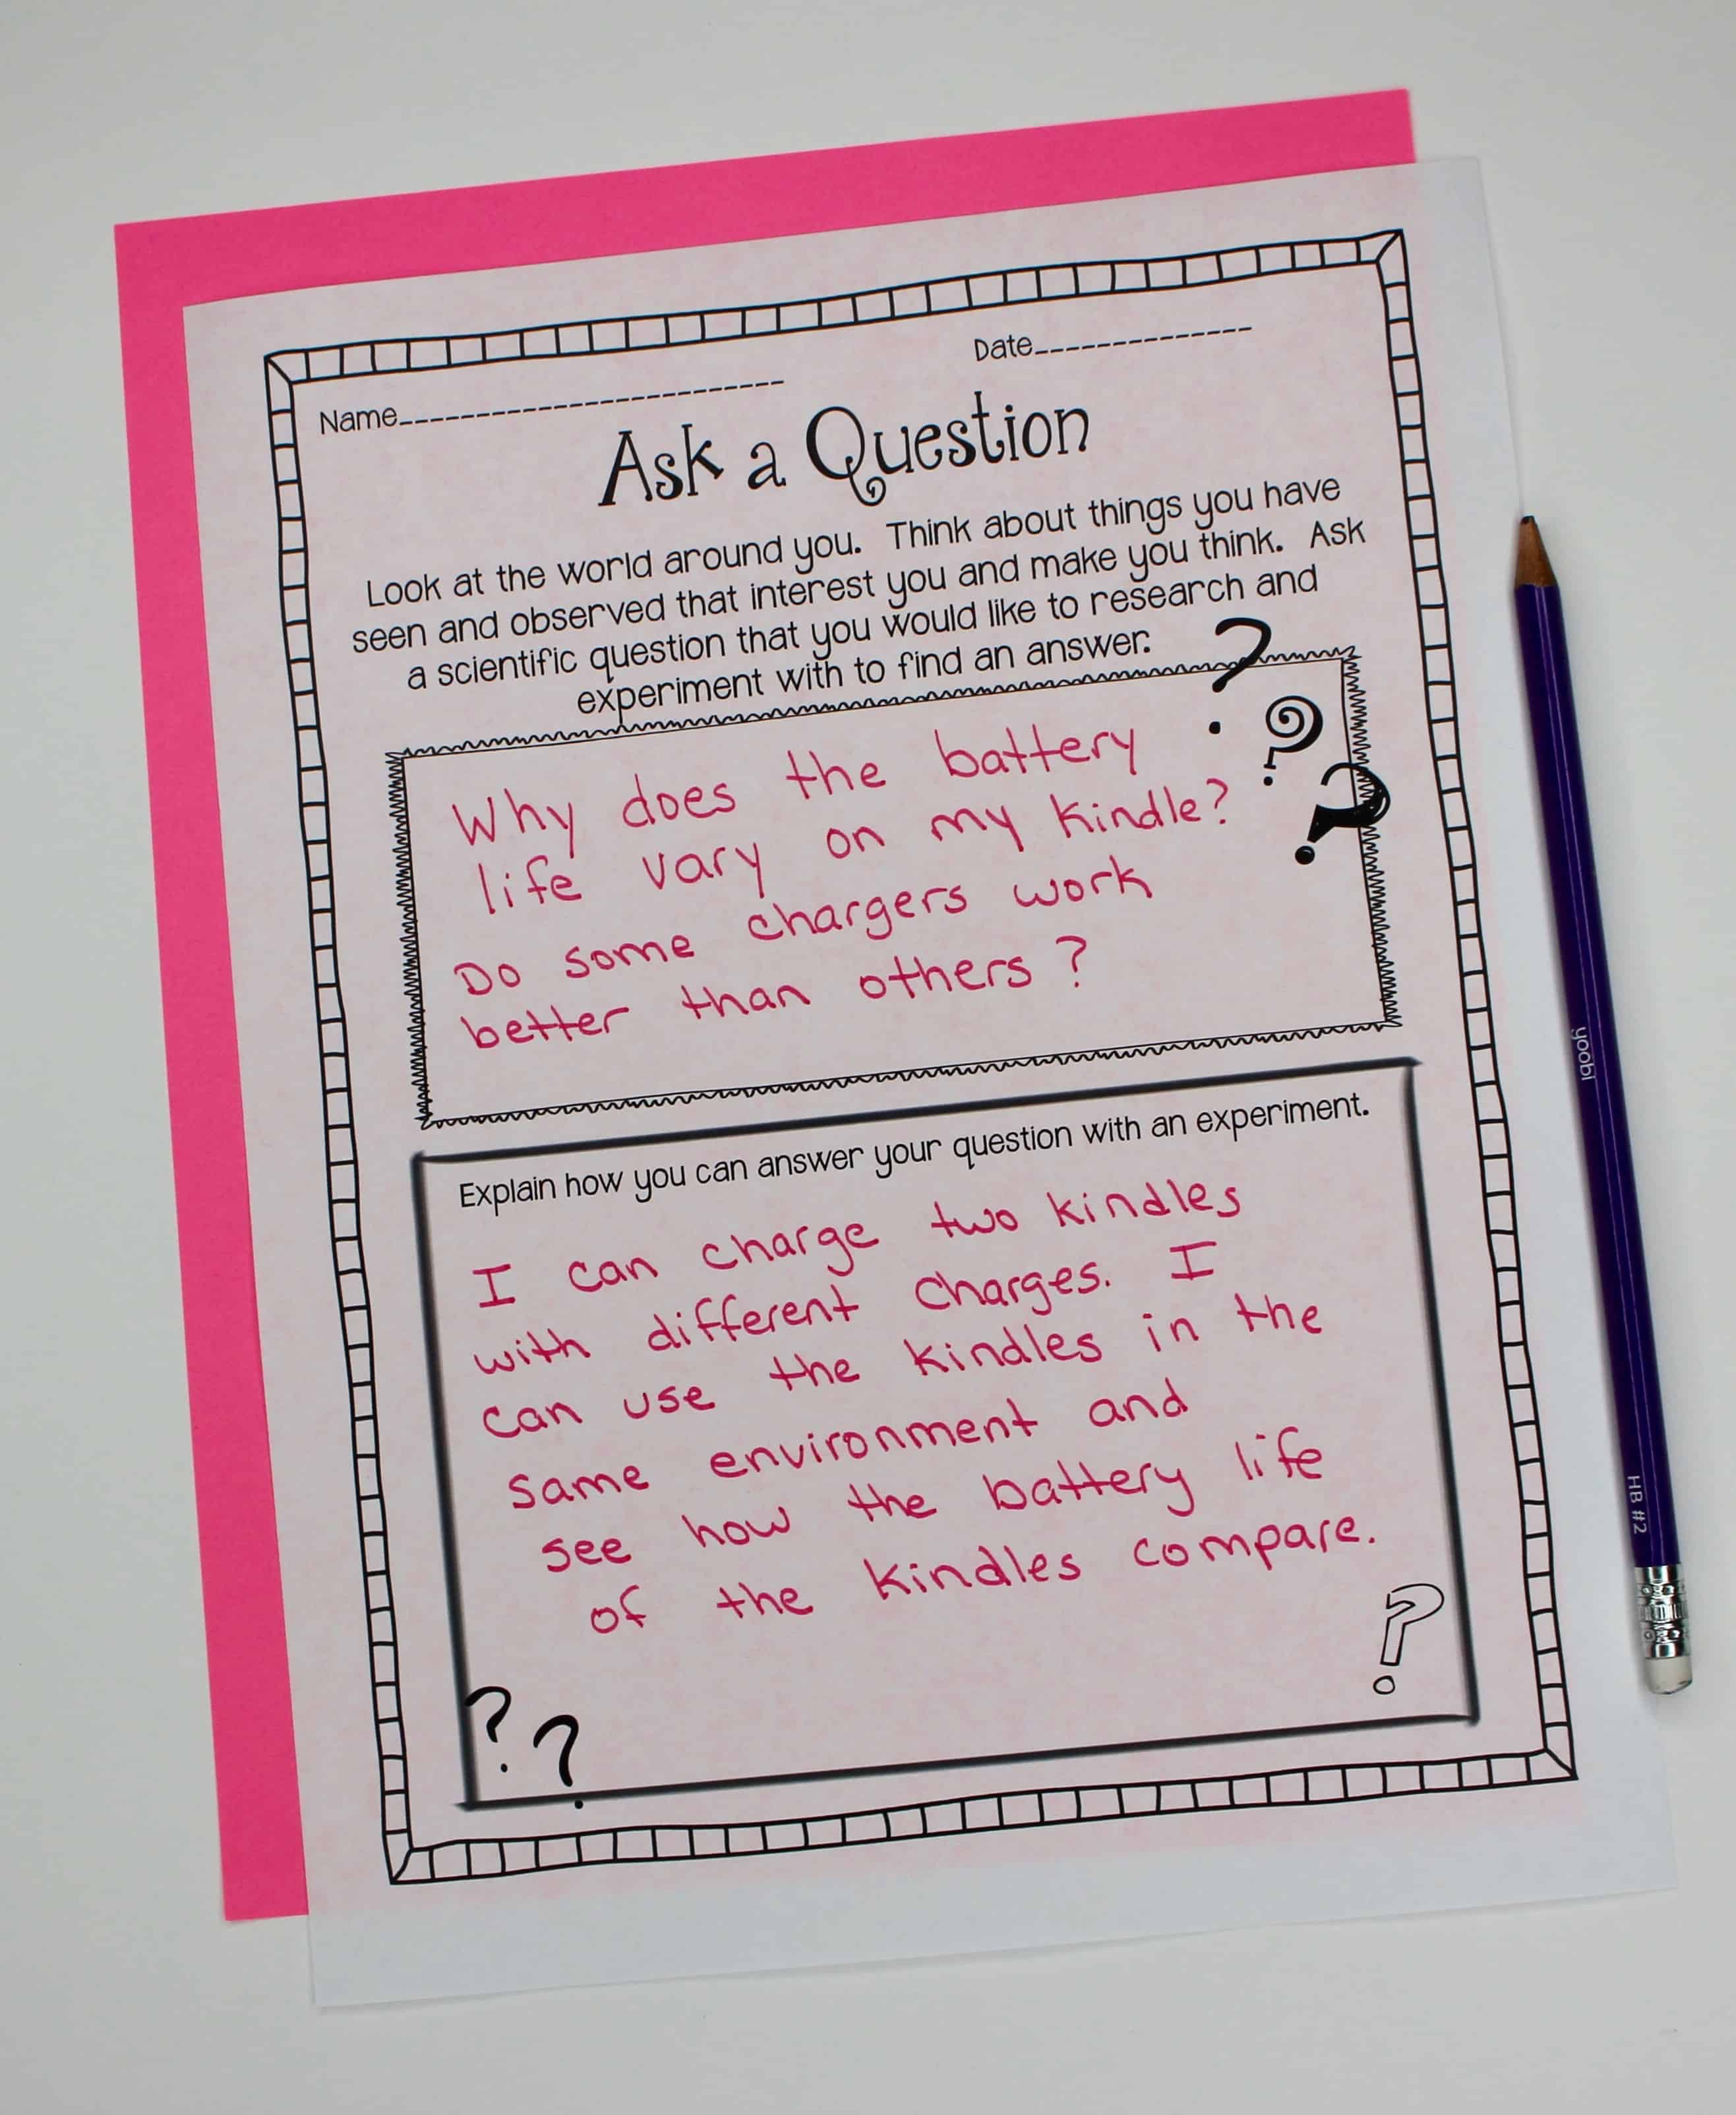 Name
Date
Ask a Question
Look at the world around you. Think about things you have
seen and observed that interest you and make you think. Ask
a scientific question that you would like to research and
experiment with to find an answer.
Why does the battery
life vary on my kindle?
Do some chargers work
better than others?
Explain how you can answer your question with an experiment.
I can charge two kindles
with different charges. I
can use the kindles in the
same environment and
see how the battery life
of the kindles compare.
yoobi
HB #2